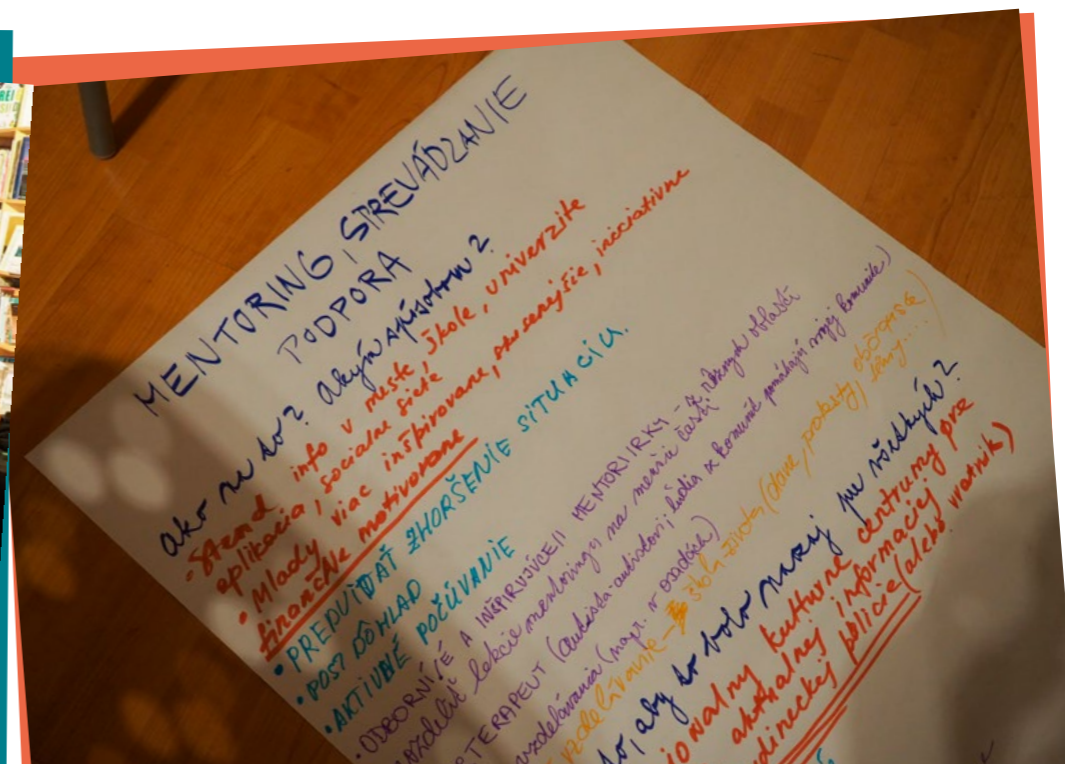 MENTORING, SPREVÁDZANIE
PODPORA
ako na to? Akým spôsobom?
• Stend info v meste, škole, univerzite
aplikacia, socialne siete
• Mlady viac inšpirovane, skusenejšie, iniciativne
finančne motivovane
• PREDVÍDAŤ ZHORŠENIE SITUÁCIU.
• POST DOHĽAD
• AKTIVNÉ POČÚVANIE
• ODBORNÍČÉ A INŠPIRUJÚCEJI MENTORI/RKY - z rôznych oblastí
rozdeliť lekcie mentoringu na menšie časti
TERAPEUT (autista-autistovi, ľudia z komunít pomáhajú svojej komunite)
vzdelávania (napr. v osadách)
vzdelávanie - škola života (dane, pôžičky, občianske
, aby to bolo naozaj pre všetkých?
kulturne centrumy pre
aktualnej informaciej
policie (alebo vratnik)